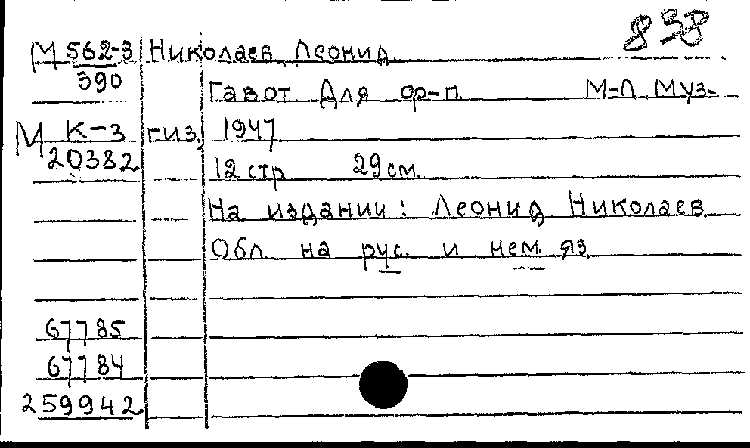 838
М 562-3 Николаев, Леонид
390
Гавот Для ф-п. М-Л Муз-
М К-3 гиз, 1947
20382
12 стр 29 см.
На издании: Леонид Николаев
Обл. на рус. и нем. яз.
67785
67784
259942